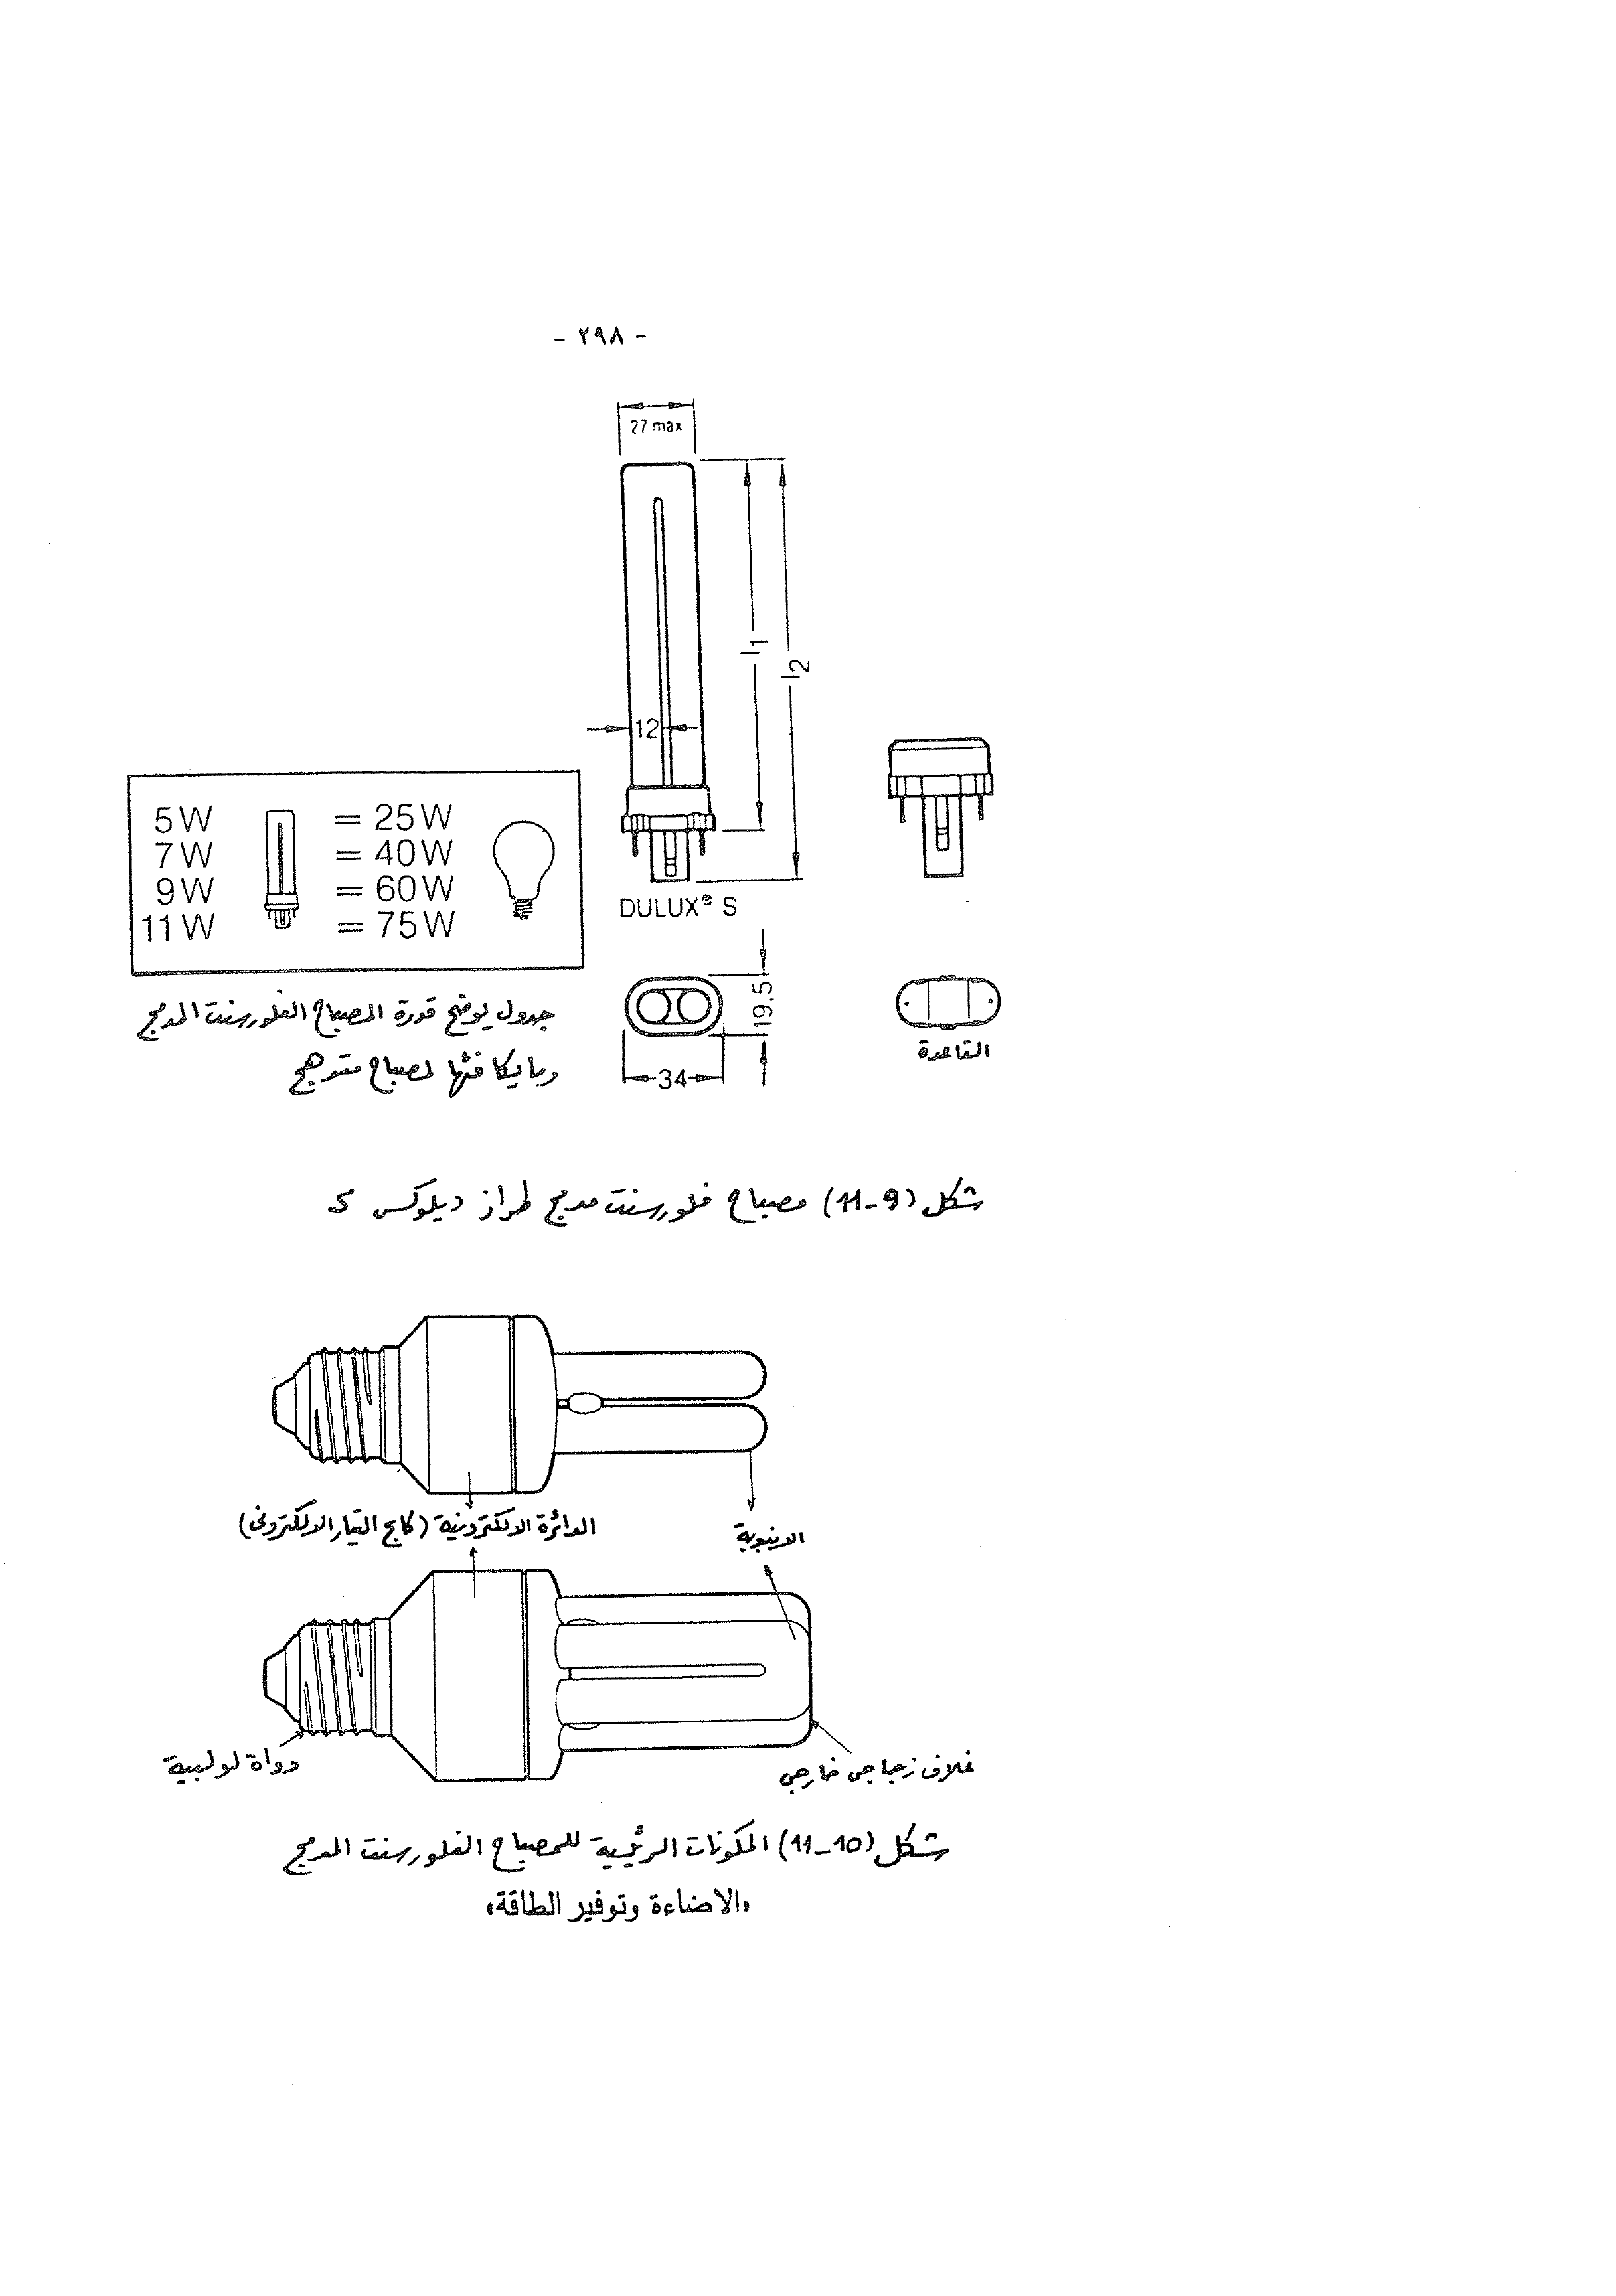 - ٢٩٨ -
27 max
l1
l2
12
5W = 25W
7W = 40W
9W = 60W
11W = 75W
DULUX® S
19.5
34
القاعدة
جدول يوضح قدرة المصباح الفلورسنت المدمج
وما يكافئها لمصباح متوهج
شكل (9-11) مصباح فلورسنت مدمج طراز ديلوكس S
الدائرة الالكترونية (كابح التيار الالكترونى)
الانبوبة
دواة لولبية
غلاف زجاجى خارجى
شكل (10-11) المكونات الرئيسية للمصباح الفلورسنت المدمج
«الاضاءة وتوفير الطاقة»